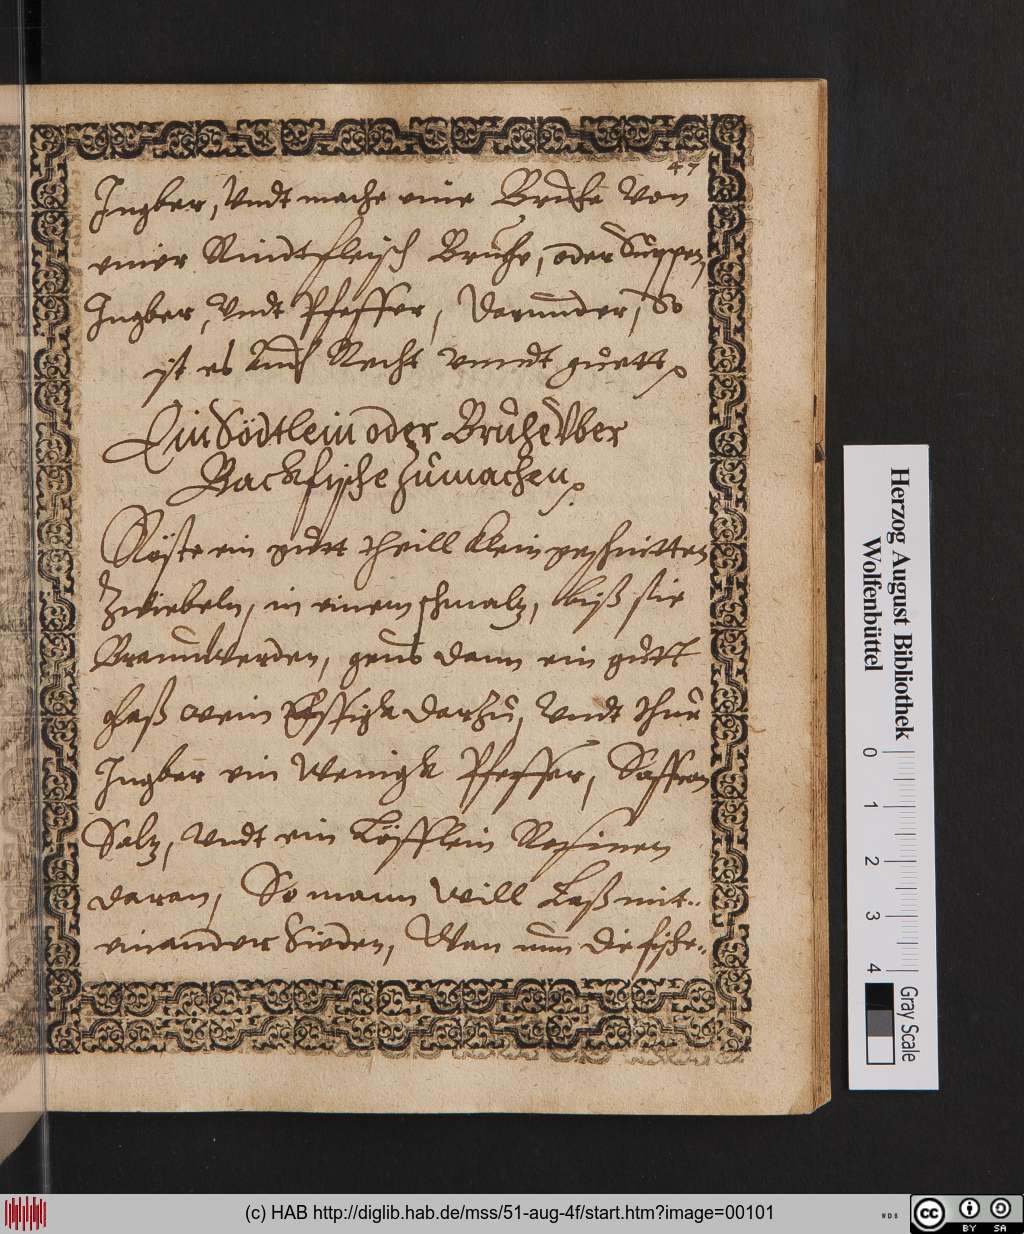 47
Ingber, Vndt mache eine Bruhe Von
einer Rindtfleisch Bruhe, oder Suppen,
Ingber, Vndt Pfeffer, Darunder, So
ist es Auch Recht vnndt guett
Ein Södtlein oder Bruhe Vber
Backfische Zumachen
Röste ein gutt theill klein geschnitten
Zwiebeln, in einem schmaltz, biß sie
Braunwerden, geus dann ein gutt
glaß wein Essigk darzu, Vndt thue
Ingber ein Wenigk Pfeffer, Saffran
Saltz, Vndt ein Löfflein Rosinen
daran, So mann Will Laß mit..
einander Sieden, Wan nun die fische..
Herzog August Bibliothek
Wolfenbüttel
0 1 2 3 4
Gray Scale
(c) HAB http://diglib.hab.de/mss/51-aug-4f/start.htm?image=00101
WDB
cc BY SA